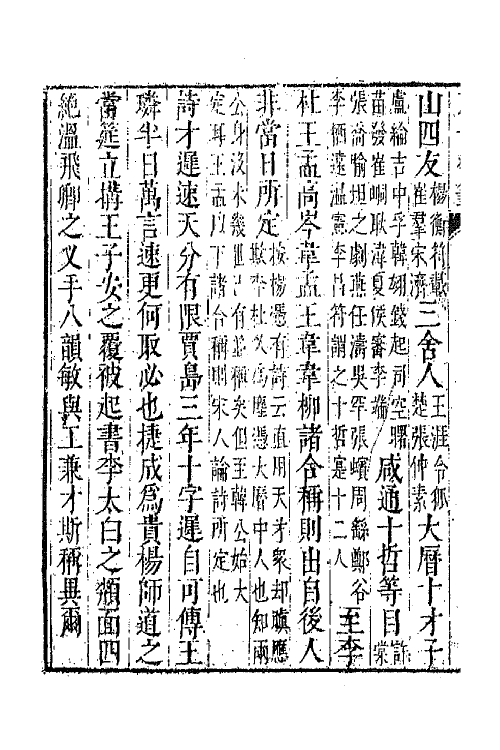 山四友楊衡符載崔羣宋濟三舍人王涯令狐楚張仲素大曆十才子
盧綸吉中孚韓翃錢起司空曙苗發崔峒耿湋夏侯審李端咸通十哲等目許棠
張喬喻坦之劇燕任濤吳罕張蠙周繇鄭谷李栖遠溫憲李昌符謂之十哲寔十二人至李
杜王孟高岑韋孟王韋韋柳諸合稱則出自後人
非當日所定按楊憑有詩云直用天才衆却瞋應欺李杜久爲魔憑大曆中人也知兩
公身沒未幾世已有並稱矣但至韓公始大定耳王孟以下諸合稱則宋人論詩所定也
詩才遲速天分有限賈島三年十字遲自可傳王
璘半日萬言速更何取必也捷成爲貴楊師道之
當筵立搆王子安之覆被起書李太白之頮面四
絶溫飛卿之叉手八韻敏與工兼才斯稱異爾